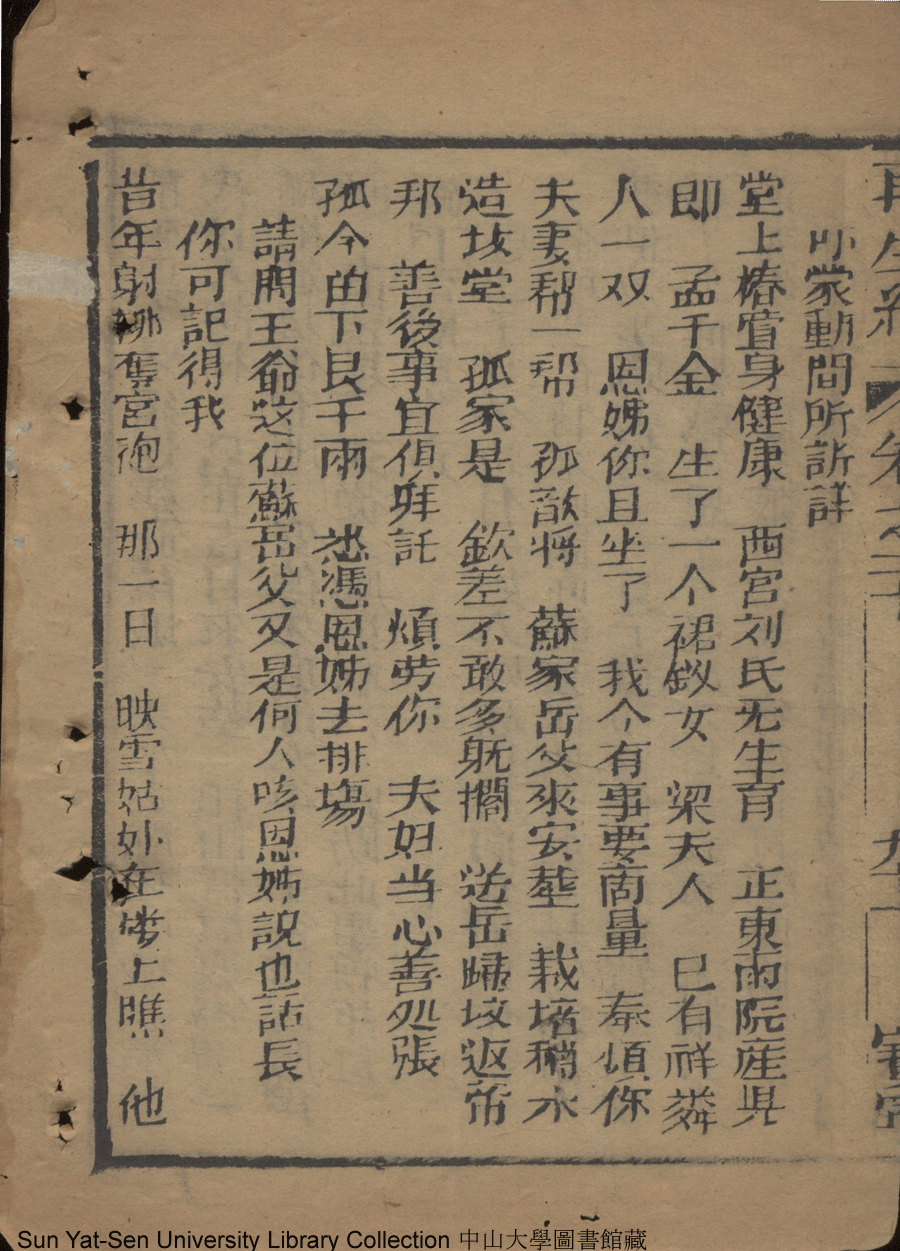 再生緣 卷之
九
小蒙動問所訴詳
堂上椿萱身健康 西宮刘氏无生育 正東両院産児
即 孟千金 生了一个裙釵女 梁夫人 已有祥麟
人一双 恩姊你且坐了 我个有事要商量 奉煩你
夫妻帮一帮 孤敵将 蘇家岳父來安塟 栽培稍水
造坟堂 孤家是 欽差不敢多躭擱 送岳歸坟返帝
邦 善後事宜俱拜託 煩劳你 夫妇当心善処張
孤今畄下艮千両 悉憑恩姊去排塲
請問王爺这位蘇岳父又是何人咳恩姊説也話長
你可記得我
昔年射柳奪宮袍 那一日 映雪姑娘在楼上瞧 他
Sun Yat-Sen University Library Collection 中山大學圖書館藏